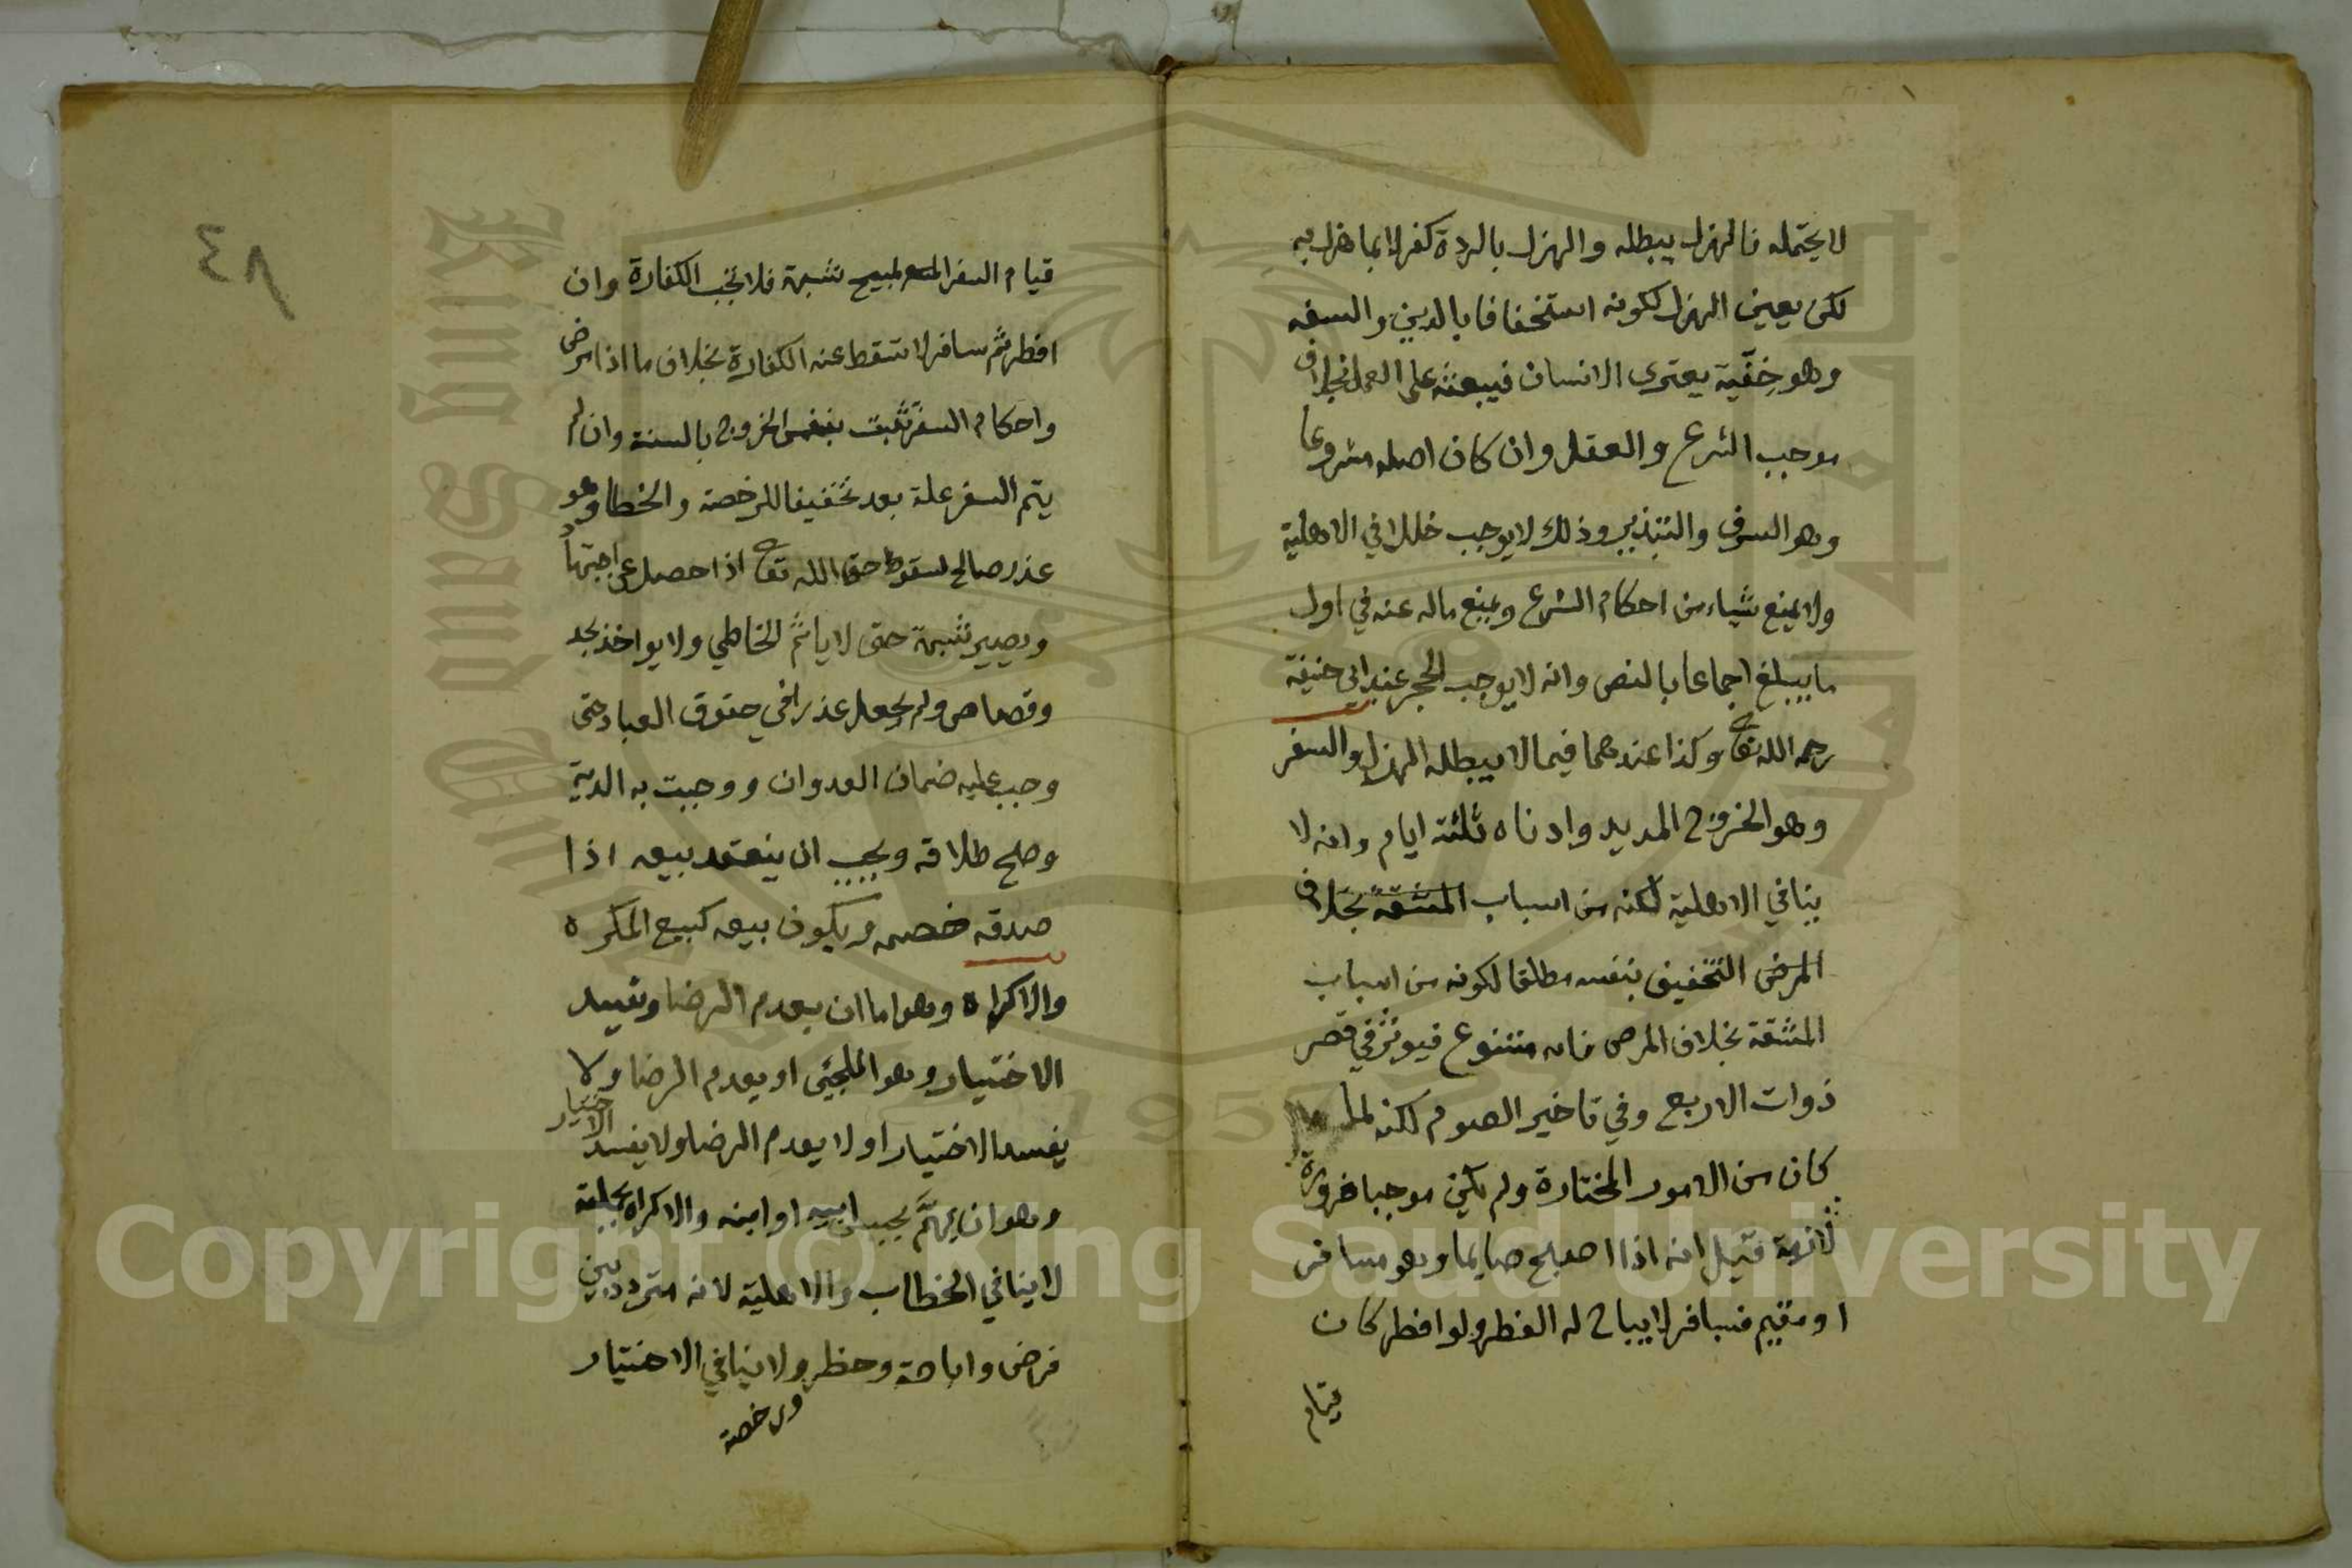 لا يحتمله فالهزل يبطله والهزل بالردة كفر لا بما هزل به
لكن بعين الهزل لكونه استخفافا بالدين والسفه
وهو خفّية يعترى الانسان فيبعثه على العمل بخلاف
موجب الشرع والعقل وان كان اصله مشروعا
وهو السرف والتبذير وذلك لا يوجب خللا في الاهلية
ولا يمنع شياء من احكام الشرع ويمنع ماله عنه في اول
ما يبلغ اجماعا بالنص وانه لا يوجب الحجر عند ابي حنيفة
رحمه الله تعا وكذا عندهما فيما لا يبطله الهزل والسفر
وهو الخروج المديد وادناه ثلثة ايام وانه لا
ينافي الاهلية لكنه من اسباب المشقة بخلاف
المرض التخفيف بنفسه مطلقا لكونه من اسباب
المشقة بخلاف المرض فانه متنوع فيوثر في قصر
ذوات الاربع وفي تاخير الصوم لكنه لما
كان من الامور المختارة ولم يكن موجبا ضرورة
لازمة قيل انه اذا اصبح صايما وهو مسافر
او مقيم فسافر لا يباح له الفطر ولو افطر كان
قيام
٤٨
قيام السفر المبيح شبهة فلا تجب الكفارة وان
افطر ثم سافر لا تسقط عنه الكفارة بخلاف ما اذا مرض
واحكام السفر تثبت بنفس الخروج بالسنة وان لم
يتم السفر علة بعد تخفيفا للرخصة والخطا وهو
عذر صالح لسقوط حق الله تعا اذا حصل عن اجتهاد
ويصير شبهة حتى لا ياثم الخاطي ولا يواخذ بحد
وقصاص ولم يجعل عذرا في حقوق العباد حتى
وجب عليه ضمان العدوان ووجبت به الدية
وصح طلاقه ويجب ان ينعقد بيعه اذا
صدقه خصمه ويكون بيعه كبيع المكره
والاكراه وهو اما ان يعدم الرضا ويفسد
الاختيار وهو الملجئ او يعدم الرضا ولا
يفسد الاختيار او لا يعدم الرضا ولا يفسد الاختيار
وهو ان يهتم بحبس ابيه او ابنه والاكراه بجملته
لا ينافي الخطاب والاهلية لانه متردد بين
فرض واباحة وحظر ولا ينافي الاختيار
ورخصة
Copyright © King Saud University
King Saud University
1957